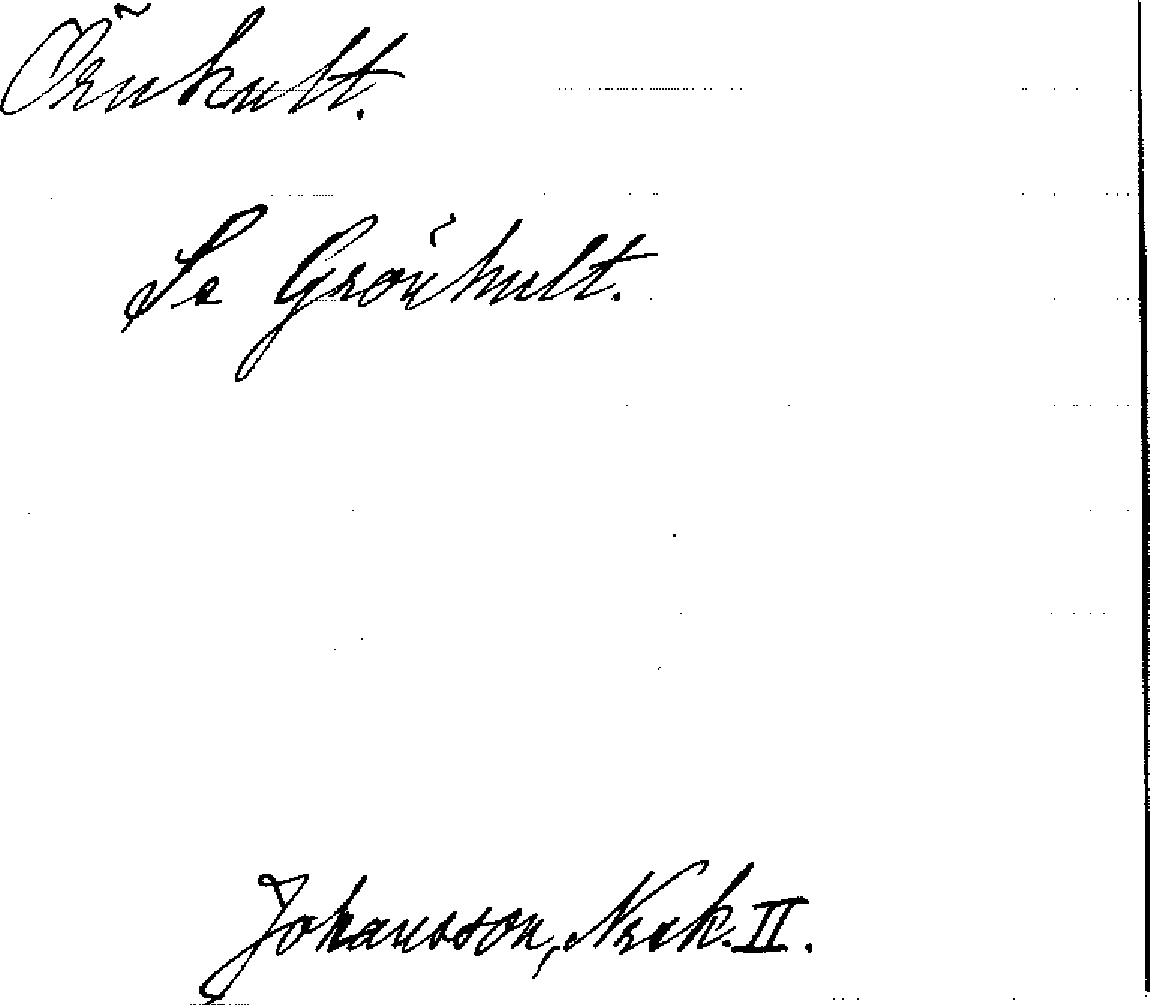 Örnkult.
Se Grönhult.
Johansson, Nrck. II.